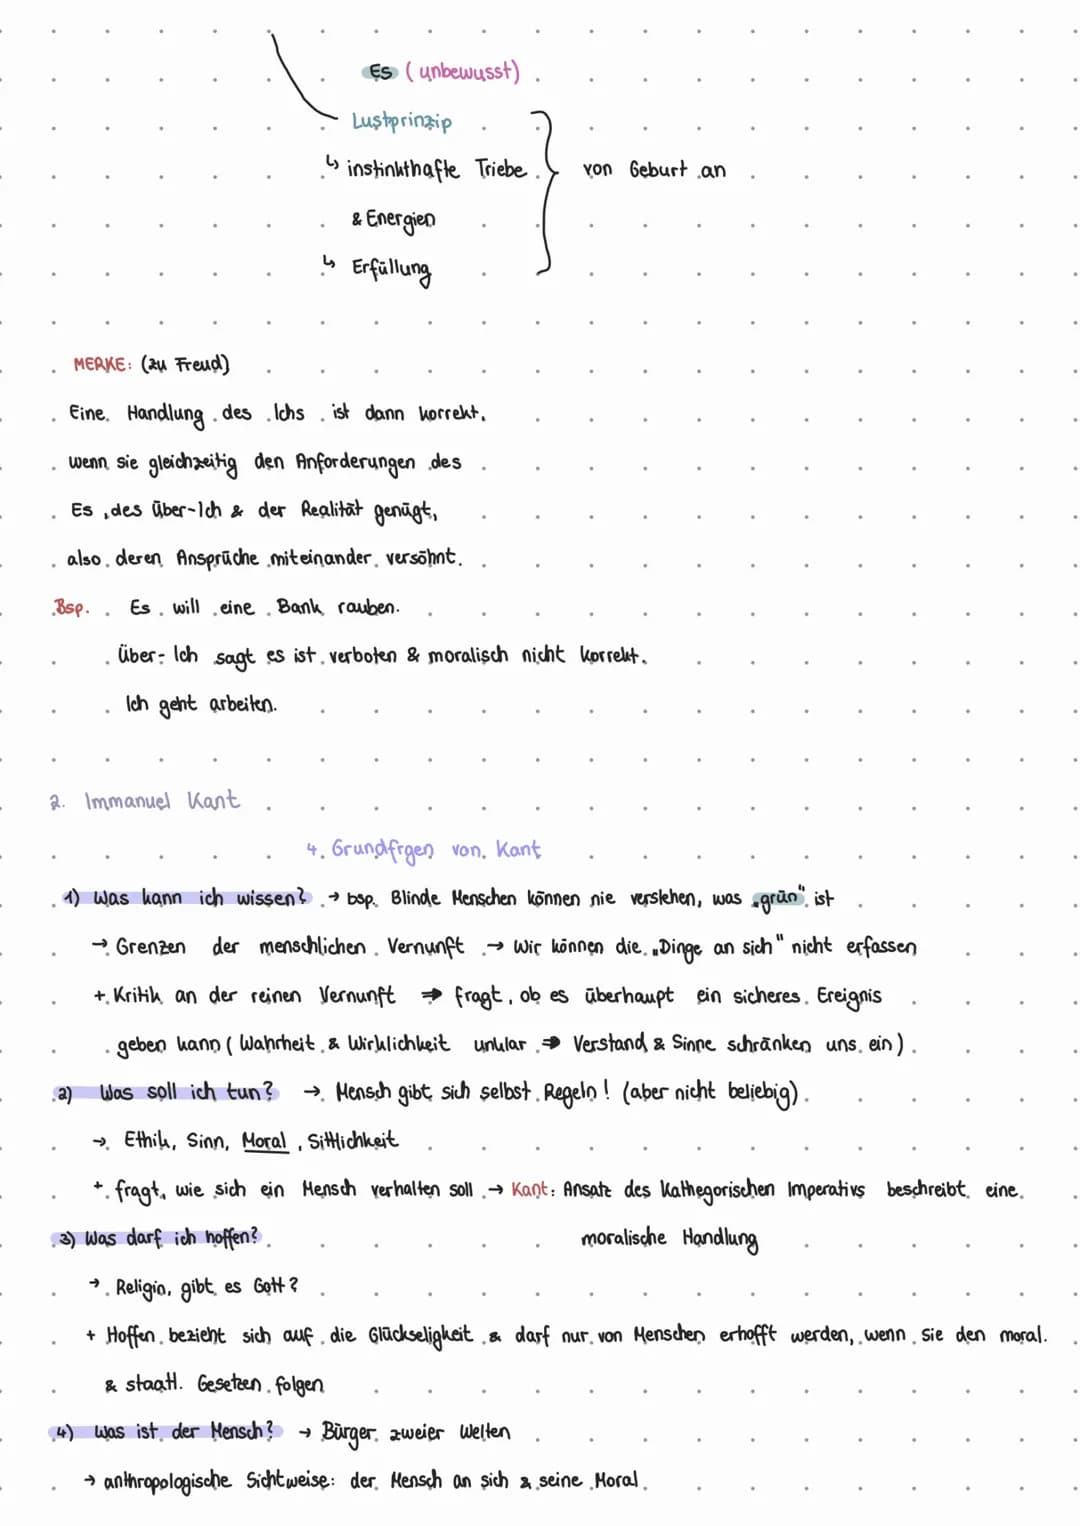 Es (unbewusst)
Lustprinzip
↳ instinkthafte Triebe
von Geburt an
& Energien
↳ Erfüllung
MERKE: (zu Freud)
Eine Handlung des Ichs ist dann korrekt,
wenn sie gleichzeitig den Anforderungen des
Es, des Über-Ich & der Realität genügt,
also deren Ansprüche miteinander versöhnt.
Bsp. Es will eine Bank rauben.
Über-Ich sagt es ist verboten & moralisch nicht korrekt.
Ich geht arbeiten.
2. Immanuel Kant
4. Grundfrgen von Kant
1) Was kann ich wissen? → bsp. Blinde Menschen können nie verstehen, was „grün" ist
→ Grenzen der menschlichen Vernunft → Wir können die „Dinge an sich" nicht erfassen
+ Kritik an der reinen Vernunft ⇒ fragt, ob es überhaupt ein sicheres Ereignis
geben kann (Wahrheit & Wirklichkeit unklar ⇒ Verstand & Sinne schränken uns ein)
2) Was soll ich tun? → Mensch gibt sich selbst Regeln! (aber nicht beliebig)
→ Ethik, Sinn, Moral, Sittlichkeit
+ fragt, wie sich ein Mensch verhalten soll → Kant: Ansatz des Kathegorischen Imperativs beschreibt eine
moralische Handlung
3) Was darf ich hoffen?
→ Religin, gibt es Gott?
+ Hoffen bezieht sich auf die Glückseligkeit & darf nur von Menschen erhofft werden, wenn sie den moral.
& staatl. Gesetzen folgen
4) Was ist der Mensch? → Bürger zweier Welten
→ anthropologische Sichtweise: der Mensch an sich & seine Moral